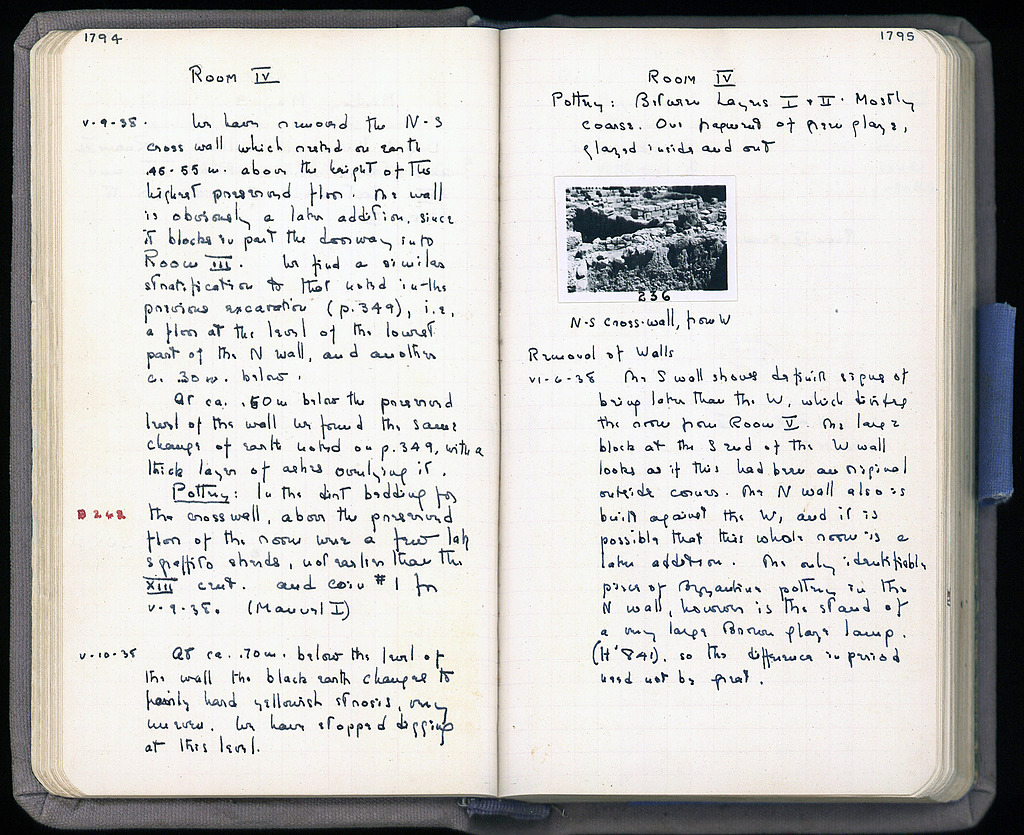 1794
Room IV
V-9-38. We have removed the N-S
cross wall which rested on earth
.45-.55 m. above the height of the
highest preserved floor. The wall
is obviously a later addition, since
it blocks in part the doorway into
Room III. We find a similar
stratification to that noted in the
previous excavation (p. 349), i.e.,
a floor at the level of the lowest
part of the N wall, and another
c. .30 m. below.
At ca. .50 m below the preserved
level of the wall we found the same
change of earth noted on p. 349, with a
thick layer of ashes overlying it.
Pottery: In the dirt bedding for
B 242
the cross wall, above the preserved
floor of the room were a few late
sgraffito sherds, not earlier than the
XIII cent. and coin #1 for
V-9-38. (Manuel I)
V-10-38 At ca. .70 m. below the level of
the wall the black earth changes to
fairly hard yellowish strosis, very
uneven. We have stopped digging
at this level.
1795
Room IV
Pottery: Between Layers I + II. Mostly
coarse. One fragment of green glaze,
glazed inside and out
236
N-S cross-wall, from W
Removal of Walls
VI-6-38 The S wall shows definite signs of
being later than the W, which divides
the room from Room V. The large
block at the S end of the W wall
looks as if this had been an original
outside corner. The N wall also is
built against the W, and it is
possible that this whole room is a
later addition. The only identifiable
piece of Byzantine pottery in the
N wall, however is the stand of
a very large Brown glaze lamp.
(H'841), so the difference in period
need not be great.